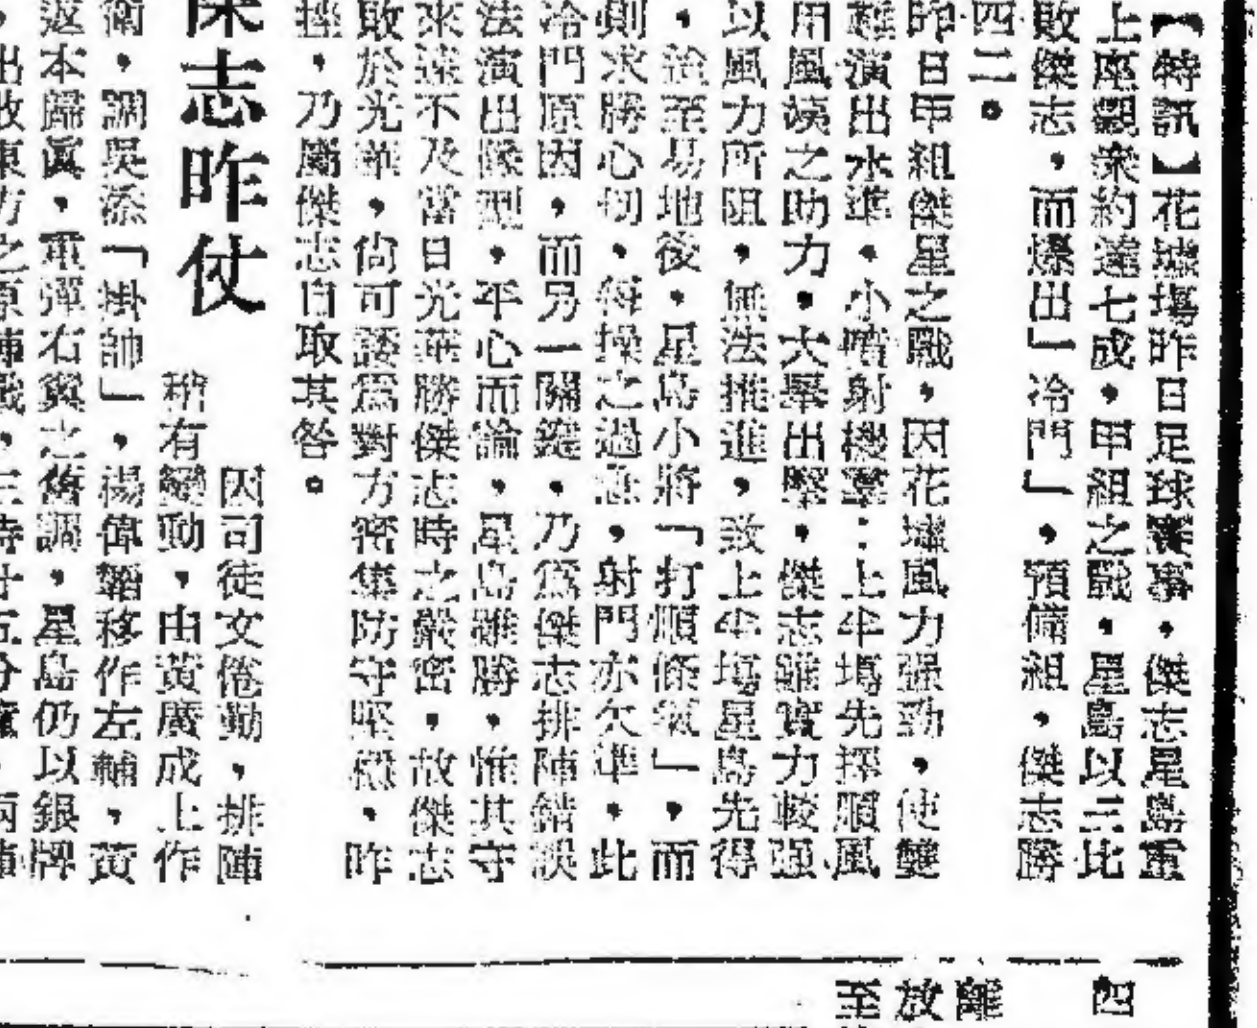 【特訊】花墟塲昨日足球賽事，傑志星島重
上座觀衆約達七成，甲組之戰，星島以三比
敗傑志，而爆出「冷門」，預備組，傑志勝
四二。
昨日甲組傑星之戰，因花墟風力强勁，使雙
難演出水準，小噴射機羣：上半塲先擇順風
用風漪之助力，大舉出擊，傑志雖實力較强
以風力所阻，無法推進，致上半塲星島先得
，迨至易地後，星島小將「打順條氣」，而
則求勝心切，每操之過急，射門亦欠準，此
冷門原因，而另一關鍵，乃爲傑志排陣錯誤
法演出陣型，平心而論，星島雖勝，惟其守
來遠不及當日光華勝傑志時之嚴密，故傑志
敗於光華，尙可諉爲對方密集防守堅穩，昨
挫，乃屬傑志自取其咎。
傑志昨仗
因司徒文倦勤，排陣
稍有變動，由黃廣成上作
衛，調吳添「掛帥」，楊偉韜移作左輔，黃
返本歸眞，重彈右翼之舊調，星島仍以銀牌
四
離
放
至